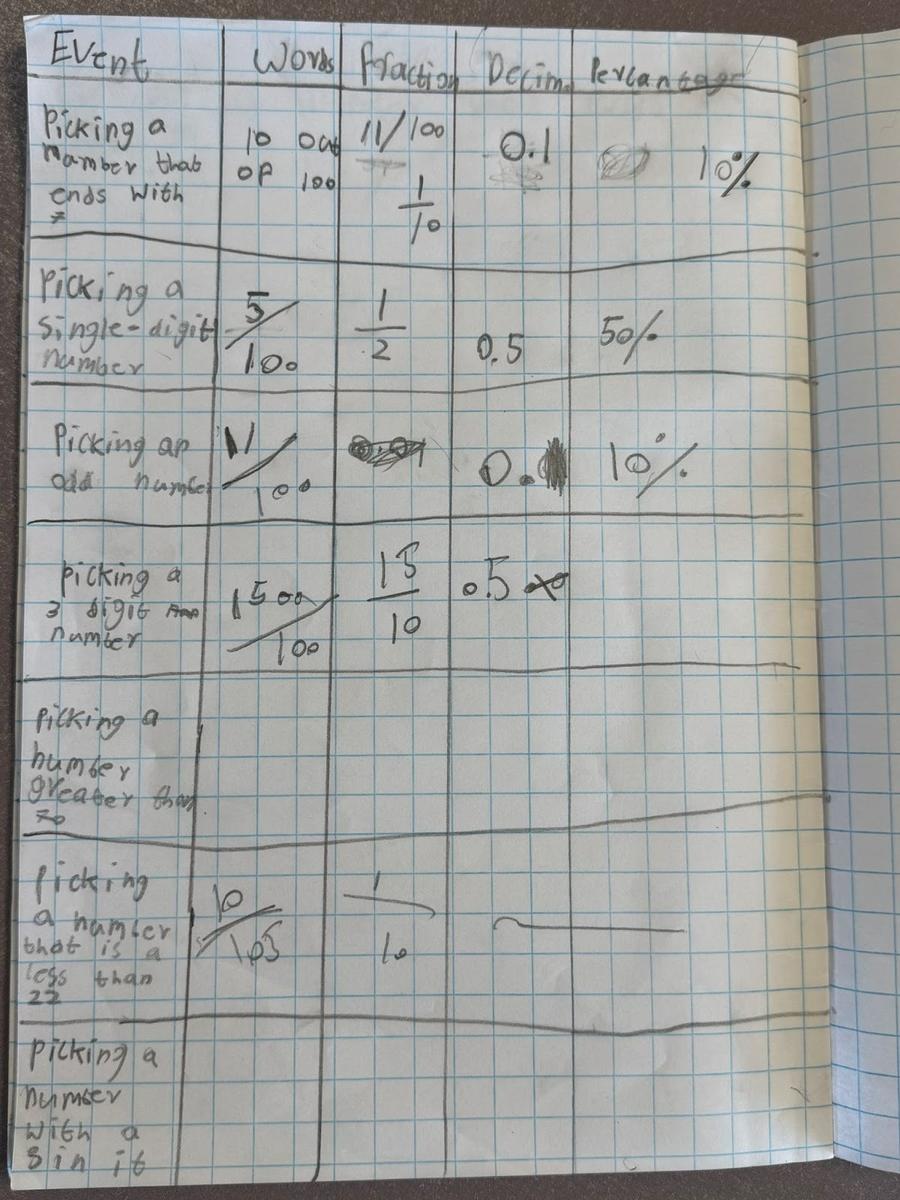 Event Words fraction Decim. Percantage
Picking a
number that
ends with
7
10 out
of 100
11/100
1
10
0.1
10%
Picking a
single-digit
number
5
100
1
2
0.5
50%
Picking an
odd number
11
100
0.
10%
picking a
3 digit
number
1500
100
15
10
.5
picking a
number
greater than
70
Picking
a number
that is a
less than
22
10
105
1
10
picking a
number
with a
8 in it